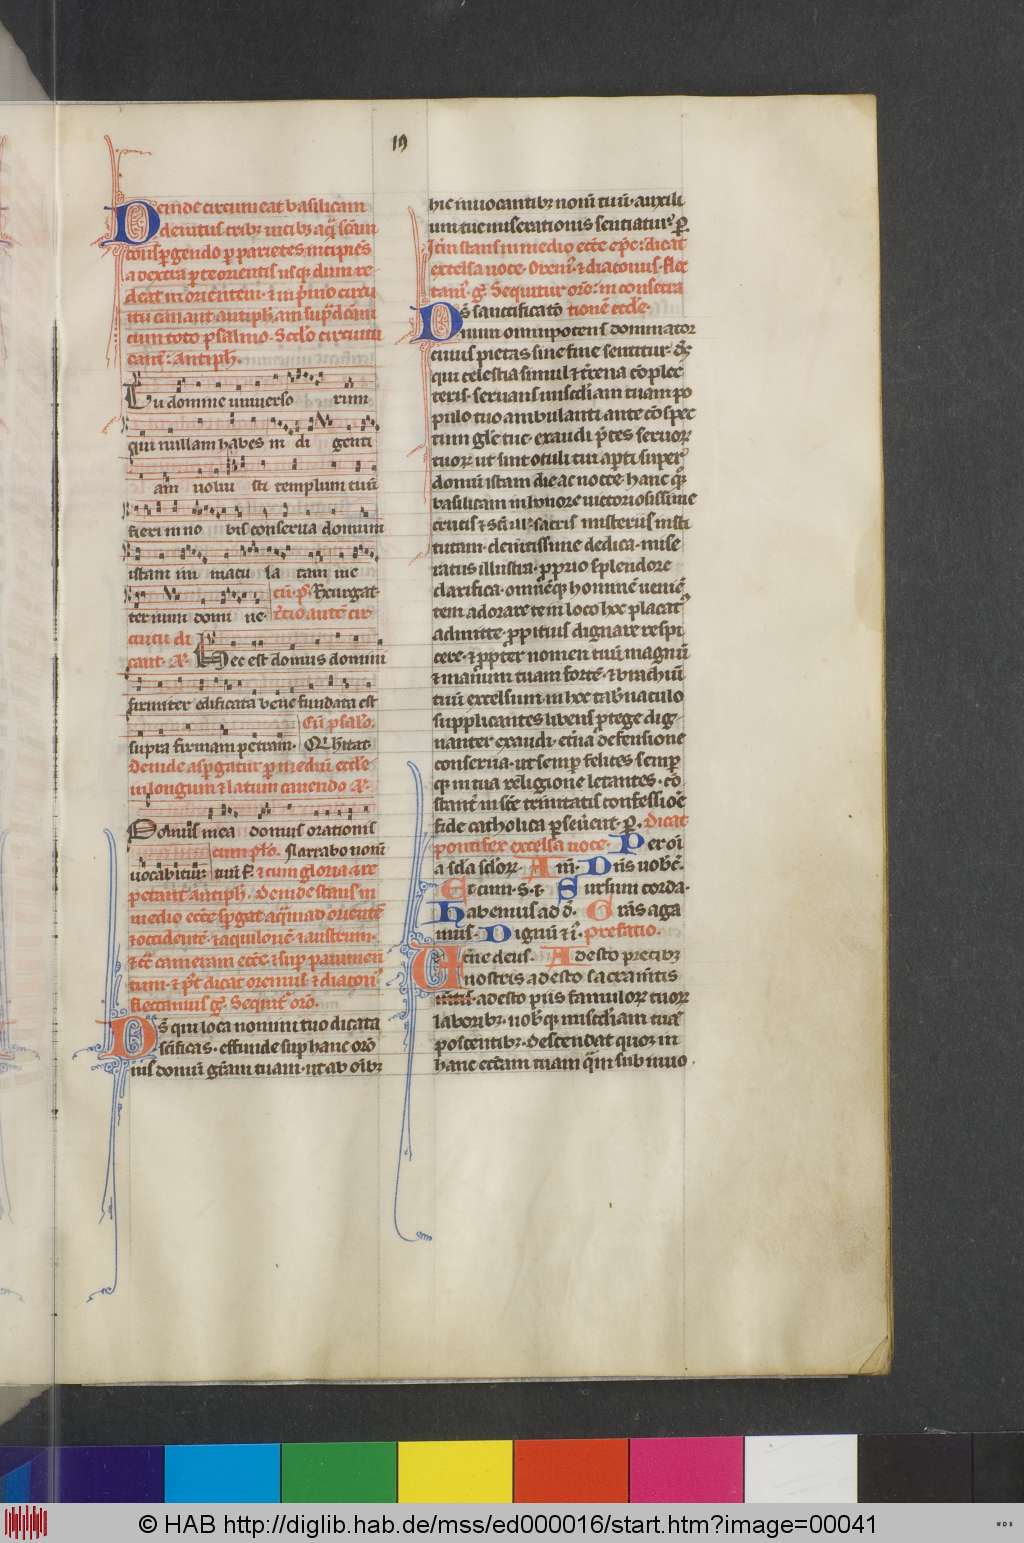 19
Deinde circumeat basilicam
deintus trib; vicib; aqa scam
conspergendo p parietes incipiens
a dextra pte orientis usq; dum re
deat in orientem · & in pimo circu
itu canant antipham supdcam
cum toto psalmo · Scdo circuitu
cant: antiph.
Tu domine universo rum
qui nullam habes in di genti
am voluisti templum tuu
fieri in no bis conserva domum
istam in macu la tam ine
cu ps Exurgat
ternum domi ne tcio aute cir
cuitu di
cant · A Hec est domus domini
firmiter edificata bene fundata est
Cu psalo.
supra firmam petram · Qui hitat
Deinde aspergatur p mediu eccle
in longum & latum canendo A
Domus mea domus orationis
cum pso · Narrabo nom
vocabitur tuu f. & cum gloria & re
petant antiph. Deinde stans in
medio eccle spgat aqua ad oriente
& occidente · & aquilone & austrum ·
Ds qui loca nomini tuo dicata
scificas · effunde sup hanc oro
nis domu gram tuam · ut ab oib;
hic invocantib; nom tuu · auxili
um tue miserationis sentiatur · P
Ite stans in medio eccle epe: dicat
excelsa voce · Orem · & diaconus · flec
tam · g Sequitur oro: in consecra
Ds sanctificato tione eccle ·
num omnipotens dominator
cuius pietas sine fine sentitur · ds
qui celestia simul & trena coplec
teris · servans miscdiam tuam po
pulo tuo ambulanti ante cospec
tum gle tue · exaudi pces servor
tuor ut sint oculi tui apti super
domu istam die ac nocte · hanc q
basilicam in honore victoriosissime
crucis & sci · sacris misteriis insti
tutam · clemtissime dedica · mise
ratus illustra · pprio splendore
clarifica · omneq; homine venie
tem adorare te in loco hoc placat
admitte · ppitius dignare respi
cere · & ppter nomen tuu magnu
& manum tuam forte · & brachiu
tuu excelsum · in hoc tabnaculo
supplicantes libens ptege dig
nanter exaudi · etna defensione
conserva · ut semp felices semp
q in tua religione letantes · co
stant in sce trinitatis confessioe
fide catholica psevent · P. Dicat
pontifex excelsa voce · Per oi
a scla sclor · Am · Dns vobc ·
Et cum · s · t · Sursum corda ·
Habemus ad d. Gras aga
mus · Dignu & i · prefatio.
Etne deus. Adesto precib;
nostris adesto sacramtis
adesto piis famulor tuor
laborib; nobq; miscdiam tua
poscentib; · Descendat quoq in
hanc ecclam tuam qam sub invo
© HAB http://diglib.hab.de/mss/ed000016/start.htm?image=00041